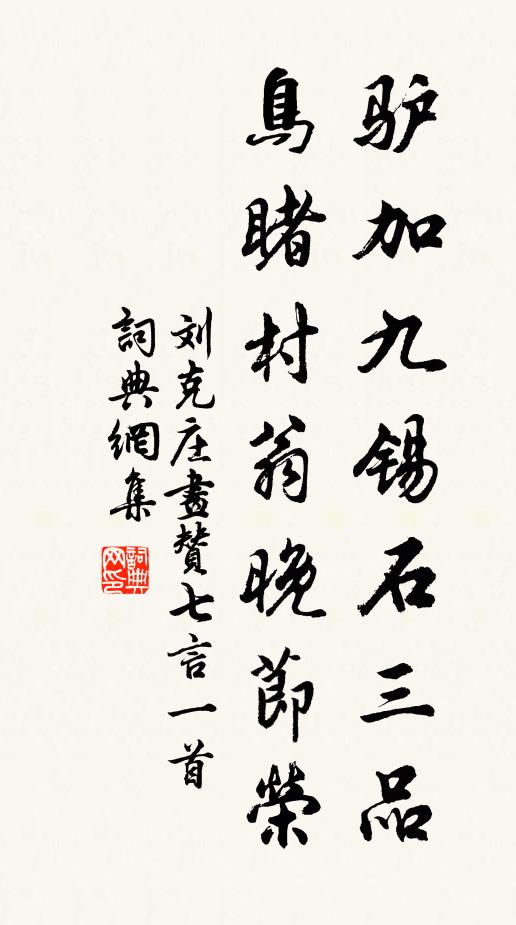 驴加九锡石三品
烏睹村翁晚節榮
刘克庄畫贊七言一首
詞典網集
詞典网印